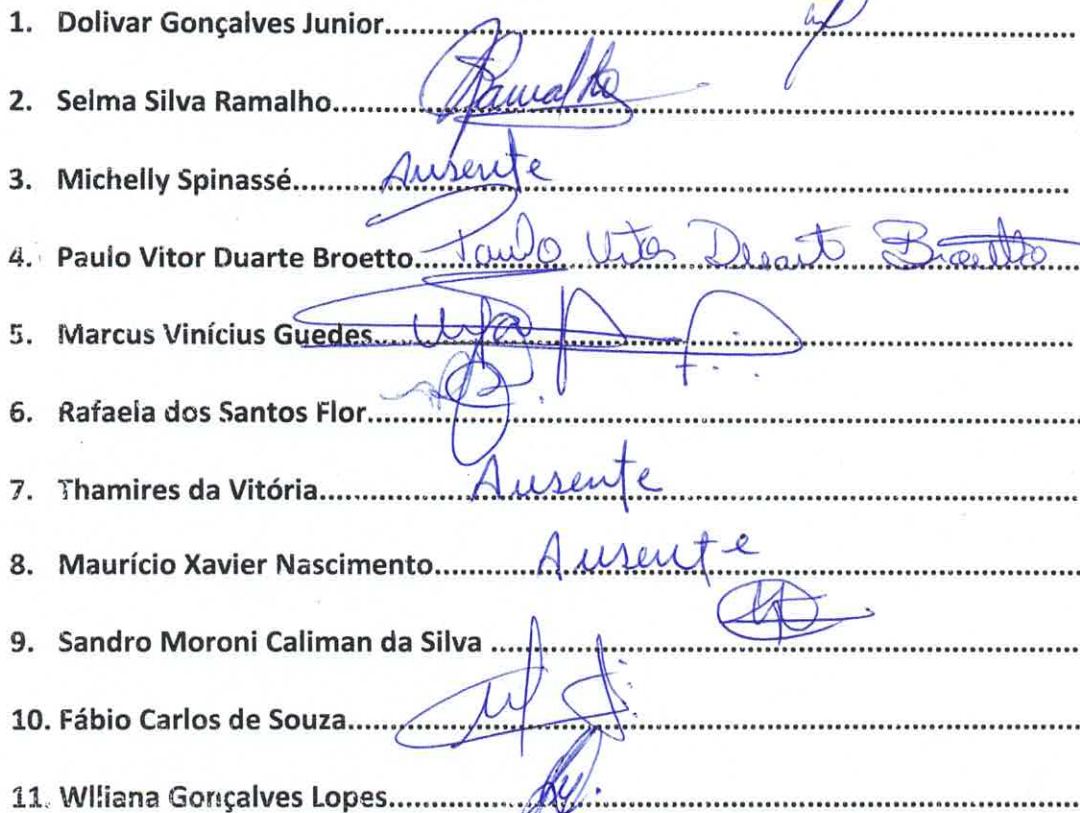 1. Dolivar Gonçalves Junior
2. Selma Silva Ramalho Ramalho
3. Michelly Spinassé Ausente
4. Paulo Vitor Duarte Broetto Paulo Vitor Duarte Broetto
5. Marcus Vinícius Guedes
6. Rafaela dos Santos Flor
7. Thamires da Vitória Ausente
8. Maurício Xavier Nascimento Ausente
9. Sandro Moroni Caliman da Silva
10. Fábio Carlos de Souza
11. Wlliana Gonçalves Lopes